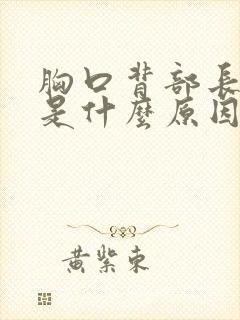 胸口背部長
是什麼原因
黃紫東